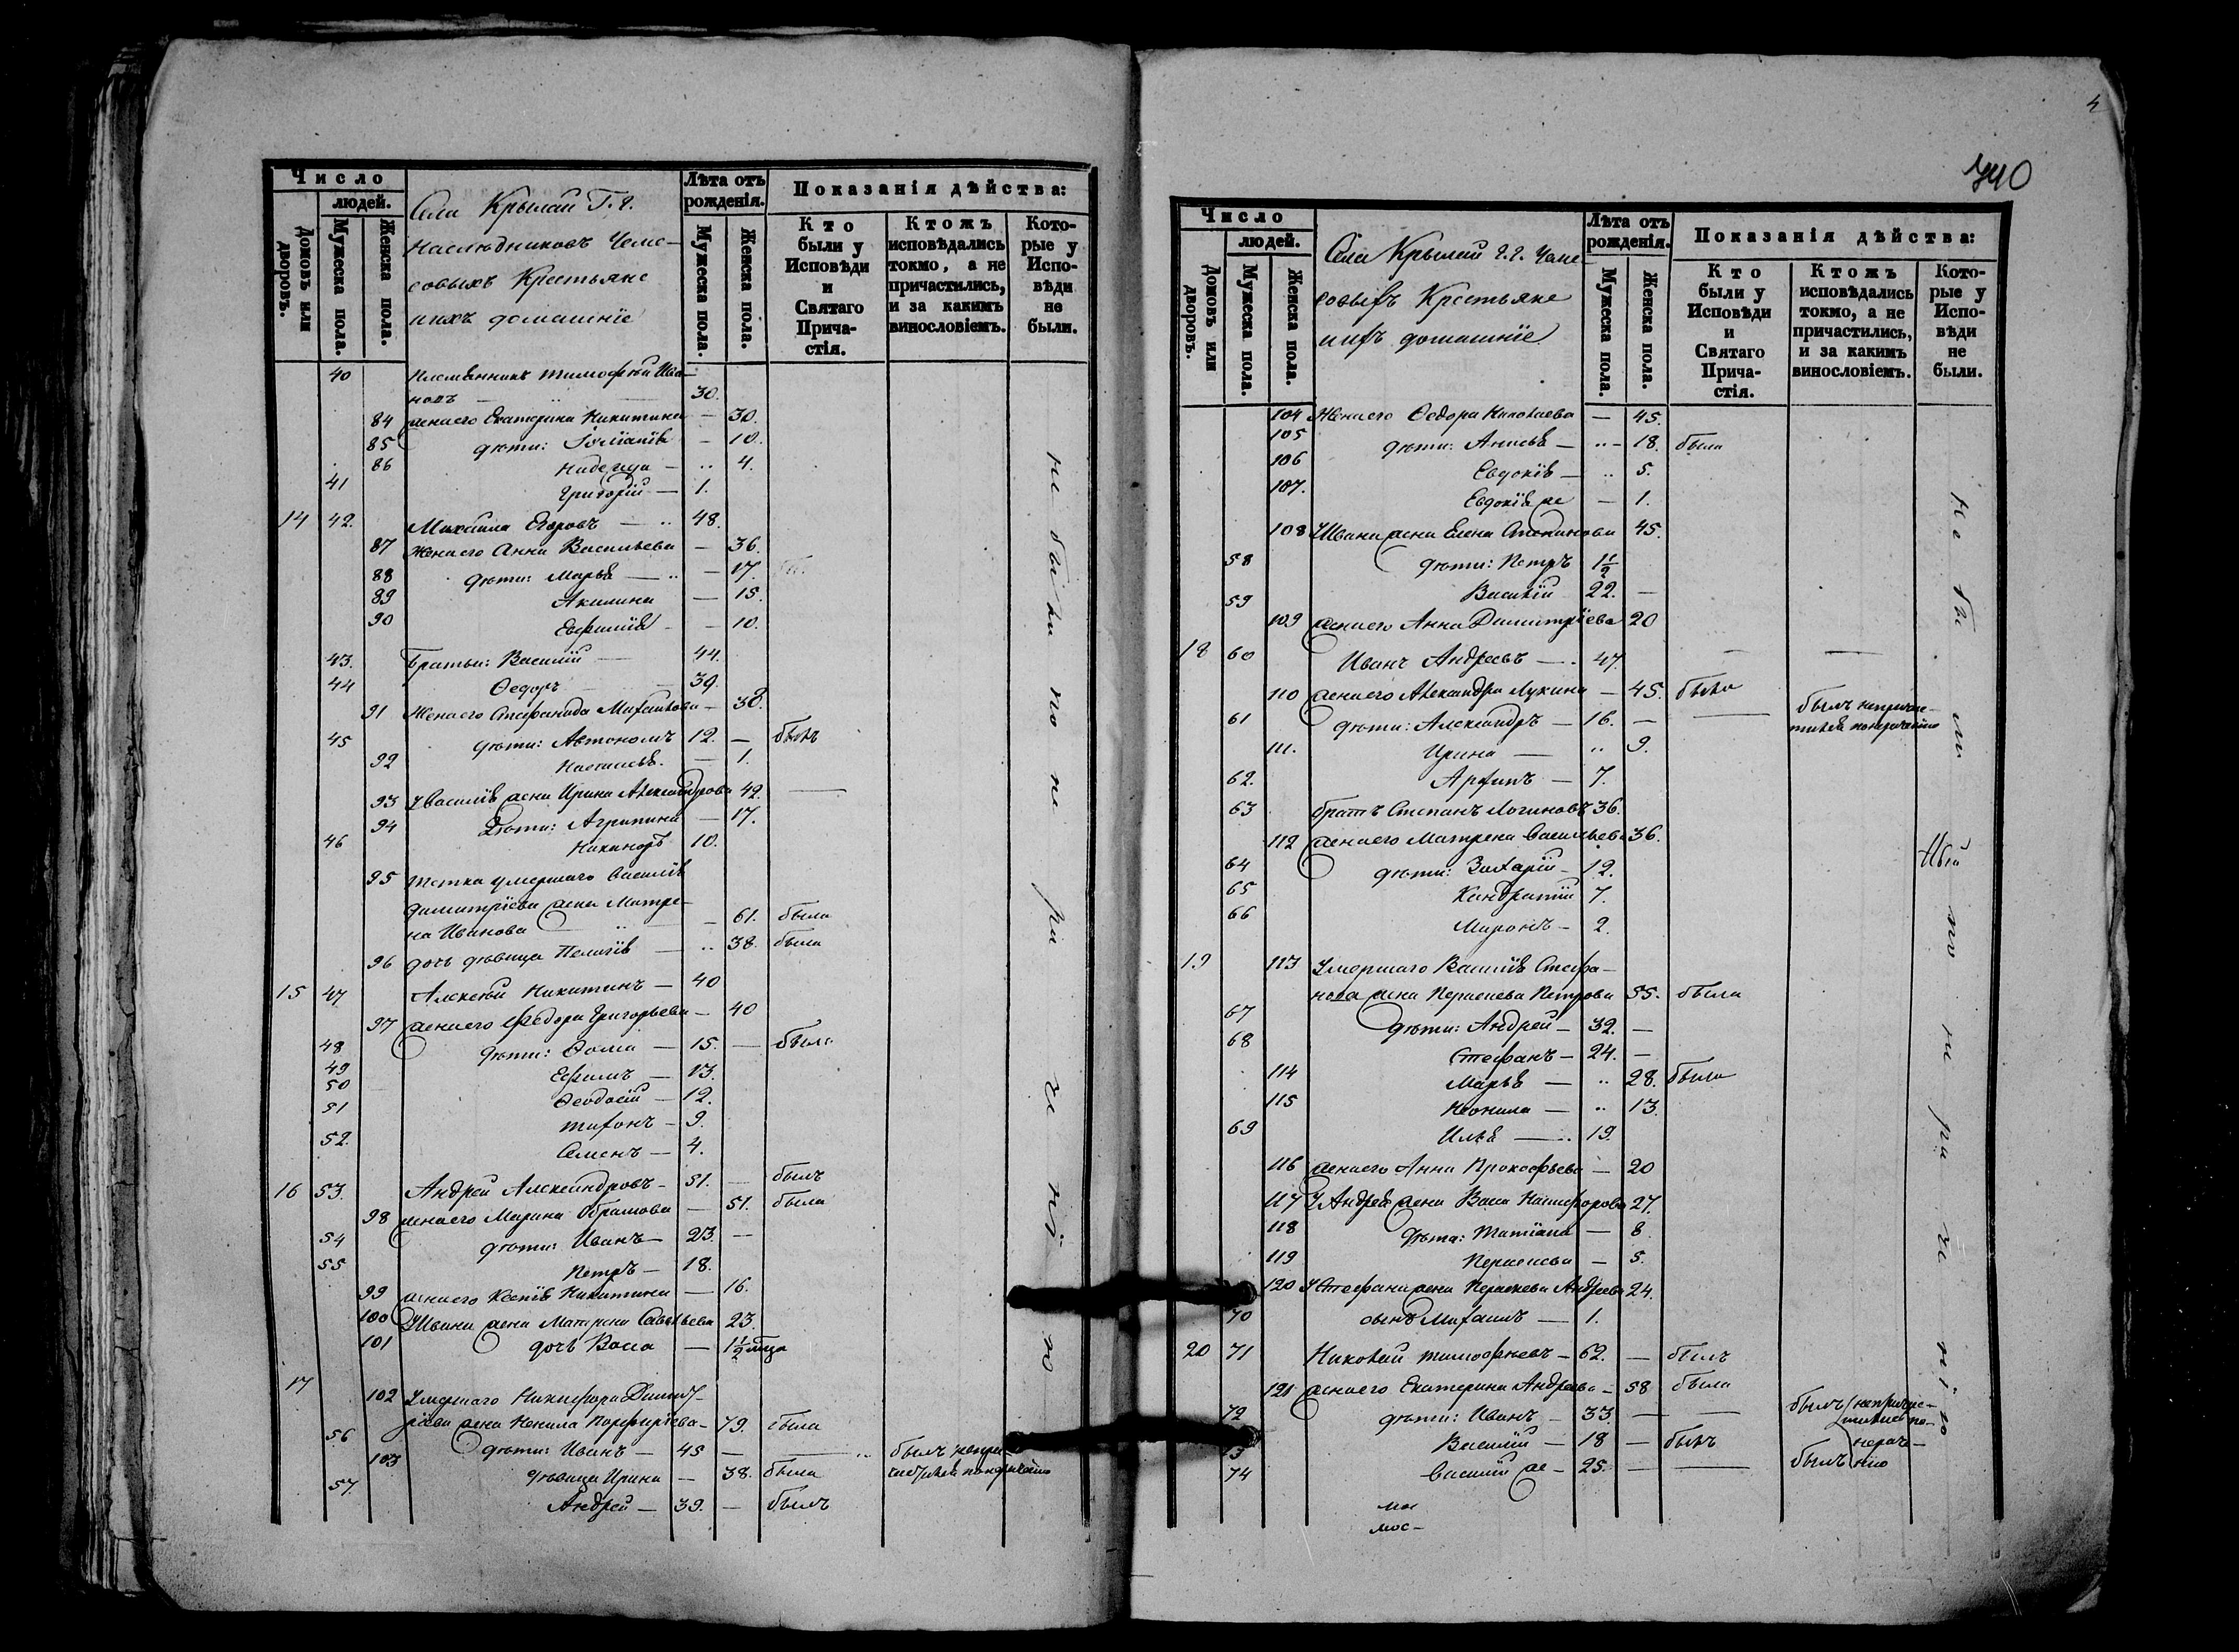 Число
людей.
Домовъ или дворовъ.
Мужеска пола.
Женска пола.
Села Крылай Г. г.
Наслѣдниковъ Чеме-
совыхъ Крестьяне
ихъ домашніе
Лѣта отъ рожденія.
Мужеска пола.
Женска пола.
Показанія дѣйства:
Кто были у Исповѣди и Святаго Прича-стія.
Ктожъ исповѣдались токмо, а не причастились, и за какимъ винословіемъ.
Кото-рые у Испо-вѣди не были.
40 племянникъ Тимофей Ива-
новъ — 30.
84 жена его Екатерина Никитина — 30.
85 дѣти: — 10.
86 4.
41 Григорій — 1.
14 42. Михаила Егоровъ — 48.
87 Жена его Анна Васильева — 36.
88 дѣти: Марья — 17.
89 Акилина — 15.
90 Евфимія — 10.
43. Братья: Василій — 44.
44 Ѳедоръ 39.
91 Жена его Стефанида Михайлова — 38.
45 дѣти: Автономъ 12. — былъ
92 — 1.
93 У Василія жена Ирина Александрова 42. —
94 Дѣти: Агрипина — 17.
46 Никаноръ 10.
95 тетка умершаго Василія
Димитріева жена Матре-
на Иванова — 61. была
96 дочь дѣвица Пелагія — 38. была
15 47 Алексѣй Никитинъ — 40
97 жена его Ѳедора Григорьева — 40
48 дѣти: Ѳома — 15. — былъ
49 Ефимъ — 13.
50 Ѳеодосій — 12.
51 Тихонъ — 9.
52. Семенъ — 4.
16 53. Андрей Александровъ — 51. — былъ
98 жена его Марина Абрамова — 51. была
54 дѣти: Иванъ — 23. —
55 Петръ — 18.
99 жена его Ксенія Никитина — 16.
100 У Ивана жена Матрена Савельева 23.
101 дочь Васса — 1½
17 102 Умершаго Никифора Димит-
ріева жена Ненила Порфирьева — 79. была
56 дѣти: Иванъ — 45 — былъ непри-
103 дѣвица Ирина — 38. была частился по нерачѣнію
57 Андрей — 39. — былъ
не были по нерачѣнію
4
740
Число
людей.
Домовъ или дворовъ.
Мужеска пола.
Женска пола.
Села Крылай Г. г. Чеме-
совыхъ Крестьяне
ихъ домашніе
Лѣта отъ рожденія.
Мужеска пола.
Женска пола.
Показанія дѣйства:
Кто были у Исповѣди и Святаго Прича-стія.
Ктожъ исповѣдались токмо, а не причастились, и за какимъ винословіемъ.
Кото-рые у Испо-вѣди не были.
104 Жена его Ѳедора Николаева — 45.
105 дѣти: Анисья — 18. была
106 Евдокія — 5.
107. Евдокія же — 1.
108 У Ивана жена Елена 45.
58 дѣти: Петръ 1½
59 Василій 22. —
109 жена его Анна Димитріева 20
18 60 Иванъ Андреевъ — 47. — —
110 жена его Александра Лукина — 45. была
61 дѣти: Александръ — 16. — — былъ неприча-
стился по нерачѣнію
111. Ирина — 9.
62. Архипъ — 7.
63 братъ Степанъ Логиновъ 36.
112 жена его Матрена Савельева 36.
64 дѣти: Захарій — 12.
65 Кондратій 7.
66 Миронъ — 2.
19 113 Умершаго Василія Стефа-
нова жена Перасковья Петрова 55. была
67 дѣти: Андрей — 32. —
68 Стефанъ — 24. —
114 Марья — 28. была
115 Неонила — 13.
69 Илья — 19.
116 жена его Анна Прокофьева — 20
117 У Андрея жена Васса Никифорова 27.
118 Дѣти: Татіана — 8
119 5.
120 У Стефана жена Андреева 24.
70 сынъ Михаилъ — 1.
20 71 Николай Тимофѣевъ — 62. — былъ
121 жена его Екатерина Андреева — 58 была
72 дѣти: Иванъ — 33. — — былъ неприча-
стился по-
73 Василій — 18 — былъ нерачѣ-
74 Василій же — 25. — — былъ нію
не были по нерачѣнію